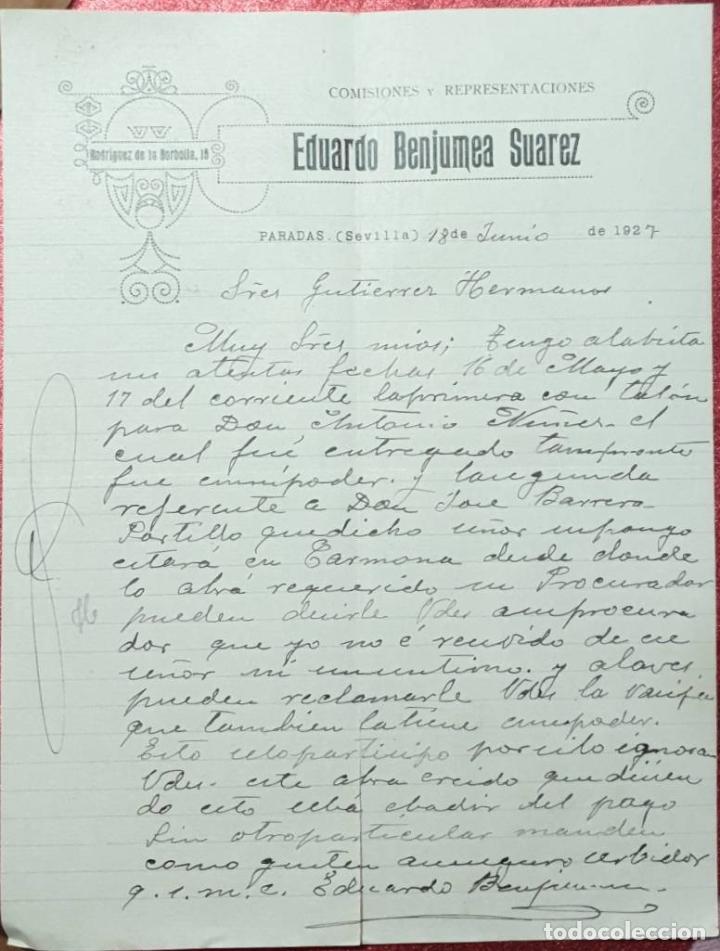 COMISIONES Y REPRESENTACIONES
Rodriguez de la Borbolla, 15
Eduardo Benjumea Suarez
PARADAS. (Sevilla) 18 de Junio de 1927
Sres Gutierrez Hermanos
Muy Sres mios; Tengo alabista
sus atentas fechas 16 de Mayo y
17 del corriente laprimera con talón
para Don Antonio Nuñes. el
cual fué entregado tampronto
fue enmipoder. y lasegunda
referente a Don Jose Barrera
Portillo quedicho señor supongo
estará en Carmona desde donde
lo abrá requerido su Procurador
pueden decirle Vdes asuprocura
dor que yo no é recibido de ese
señor ni unsentimo. y alavez
pueden reclamarle Vdes la
que tambien latiene ensupoder.
Esto seloparticipo porsilo ignoran
Vdes. este abra creido quedisien
do esto sebá ebadir del pago
Sin otroparticular manden
como gusten asuseguro serbidor
q. e. s. m. Eduardo Benjumea
todocoleccion
todocoleccion.net